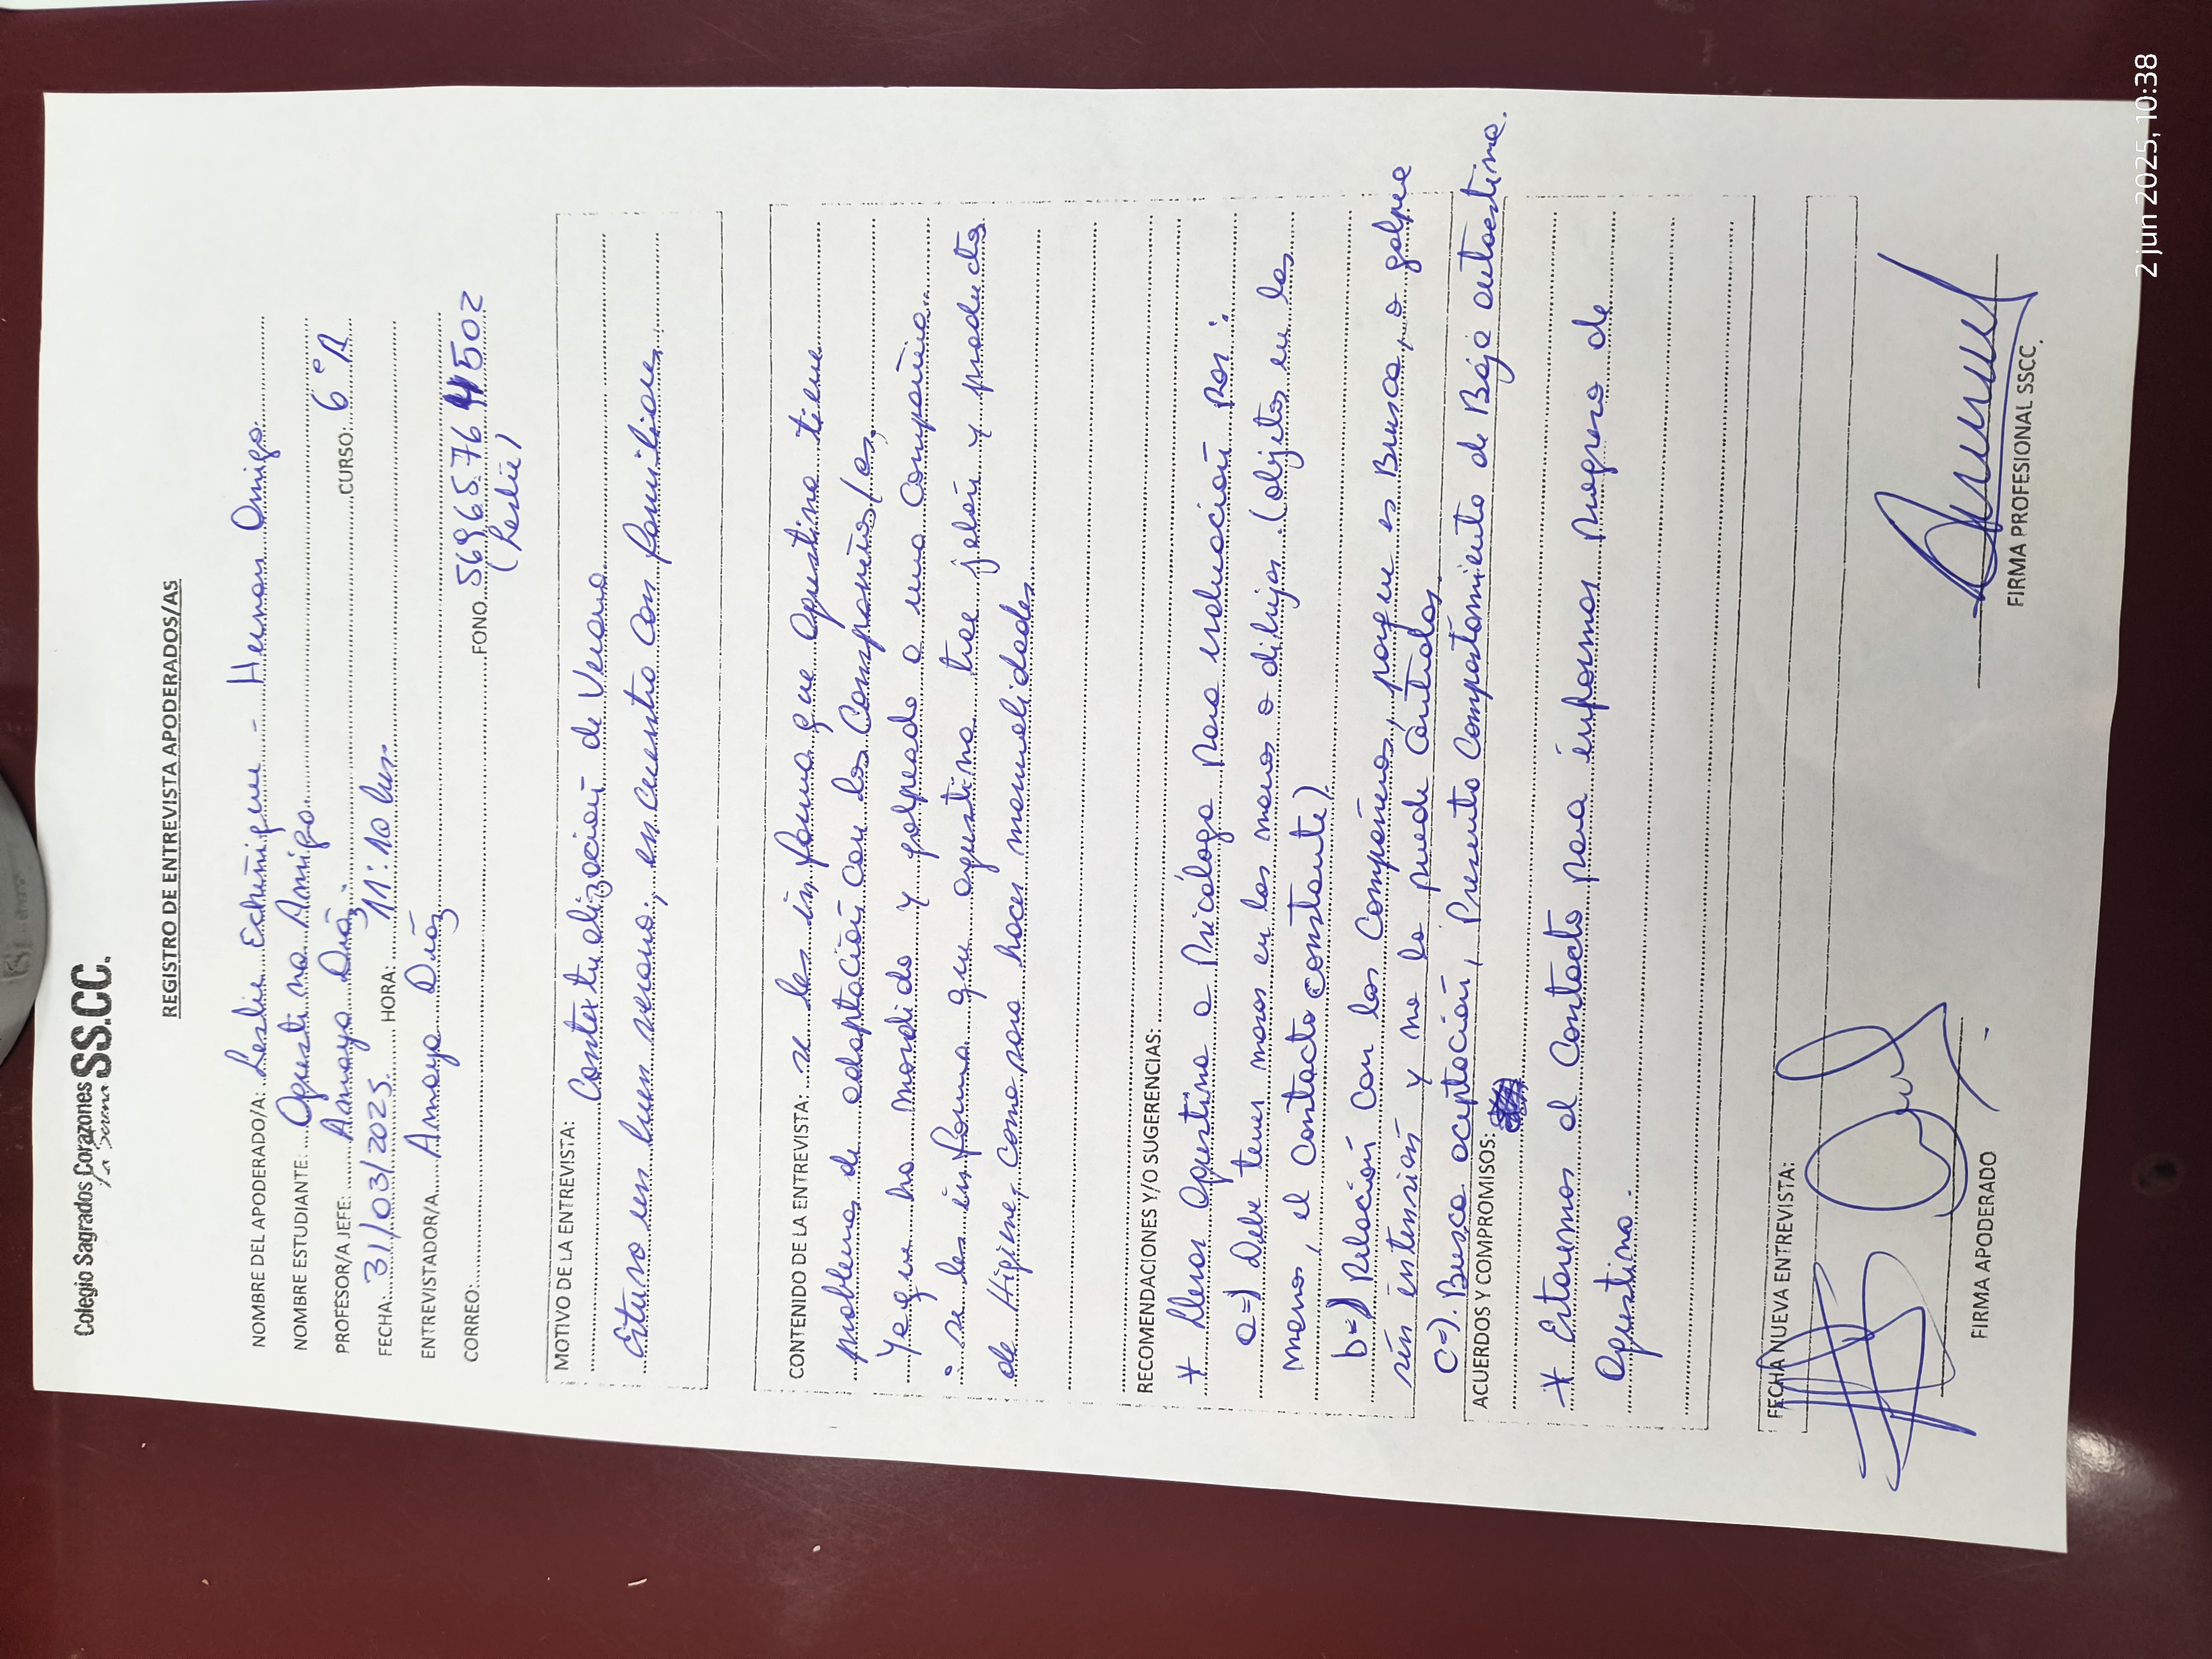 Colegio Sagrados Corazones SS.CC.
La Serena
REGISTRO DE ENTREVISTA APODERADOS/AS
NOMBRE DEL APODERADO/A: Leslie Echeñique - Hernan Amigo.
NOMBRE ESTUDIANTE: Agustina Amigo.
PROFESOR/A JEFE: Amaya Diáz. CURSO: 6°A
FECHA: 31/03/2025 HORA: 11:10 hrs.
ENTREVISTADOR/A Amaya Diáz
CORREO: FONO 56965764502
(Leslie)
MOTIVO DE LA ENTREVISTA: Contextualización de Verano.
Estuvo un buen verano, encuentro con familiares.
CONTENIDO DE LA ENTREVISTA: se les informa que Agustina tiene
problemas de adaptación con los Compañeros/as,
Ya que ha mordido y golpeado a una Compañera.
• se les informa que agustina trae jabón y productos
de Higiene, como para hacer manualidades.
RECOMENDACIONES Y/O SUGERENCIAS:
* Llevar Agustina a Psicóloga para evaluación por:
a=) Debe tener masas en las manos o dibujar. (objetos en las
manos, el contacto constante).
b=) Relación con los Compañeros, porque es Brusca, o golpea
sin intensión y no lo puede controlar.
c=). Busca aceptación, Presenta Comportamiento de Baja autoestima.
ACUERDOS Y COMPROMISOS:
* Estaremos al Contacto para informar progreso de
Agustina.
FECHA NUEVA ENTREVISTA:
FIRMA APODERADO
FIRMA PROFESIONAL SSCC.
2 jun 2025, 10:38